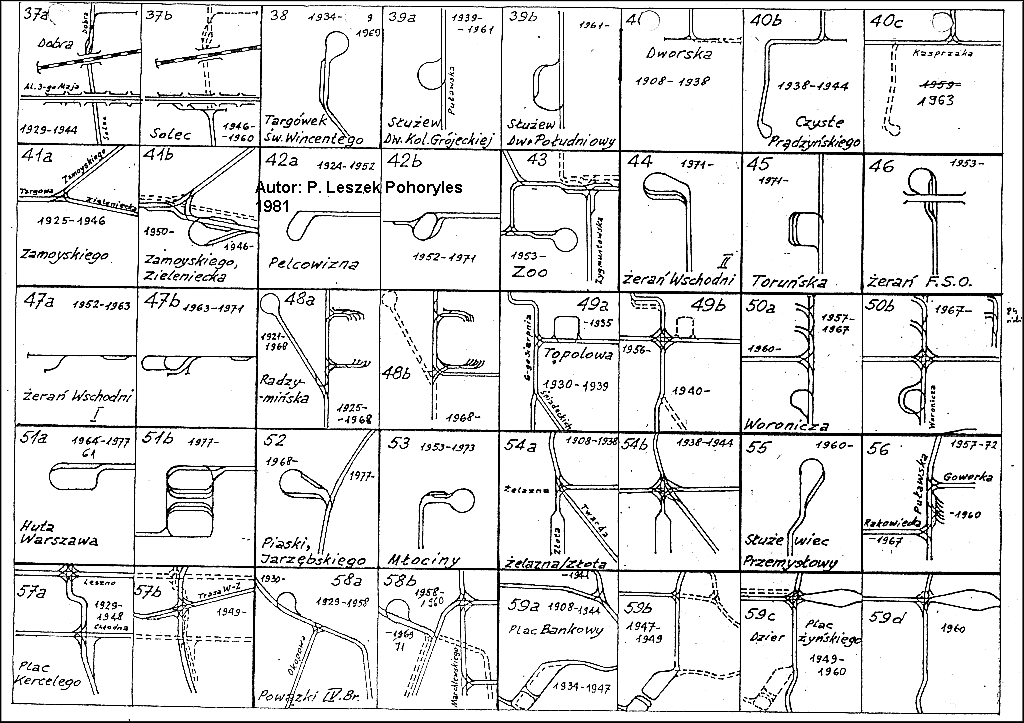 37a
Dobra
Dobra
Al. 3-go Maja
Solec
1929-1944
37b
Solec
1946-
-1960
38
1934-
9
1969
Targówek
Św. Wincentego
39a
1939-
-1961
Puławska
Służew
Dw. Kol. Grójeckiej
39b
1961-
Służew
Dw. Południowy
Dworska
1908-1938
40b
1938-1944
Czyste
Prądzyńskiego
40c
Kasprzaka
1959-
1963
41a
Zamoyskiego
Targowa
Zieleniecka
1925-1946
Zamoyskiego
41b
1950-
1946-
Zamoyskiego,
Zieleniecka
42a
1924-1952
Autor: P. Leszek Pohoryles
1981
Pelcowizna
42b
1952-1971
43
Zygmuntowska
1953-
Zoo
44
1971-
II
żerań Wschodni
45
1971-
Toruńska
46
1953-
żerań F.S.O.
47a
1952-1963
żerań Wschodni
I
47b
1963-1971
48a
1921-
1968
Radzy-
-mińska
1925-
-1968
48b
1968-
49a
-1935
6-go Sierpnia
Topolowa
1930-1939
Śniadeckich
49b
1956-
1940-
50a
1957-
1967
1960-
Woronicza
50b
1967-
Woronicza
51a
1964-1977
61
Huta
Warszawa
51b
1977-
52
1968-
1977-
Piaski,
Jarzębskiego
53
1953-1973
Młociny
54a
1908-1938
Żelazna
Twarda
Złota
żelazna/Złota
54b
1938-1944
55
1960-
Służewiec
Przemysłowy
56
1957-72
Puławska
Goworka
-1960
Rakowiecka
-1967
57a
Leszno
1929-
1948
Chłodna
Plac
Kercelego
57b
Trasa W-Z
1949-
1930-
58a
1929-1958
Okopowa
Powązki IV. Br.
58b
1958-
1960
Marchlewskiego
-1944
59a
1908-1944
Plac Bankowy
1934-1947
59b
1947-
1949
59c
Plac
Dzierżyńskiego
1949-
1960
59d
1960